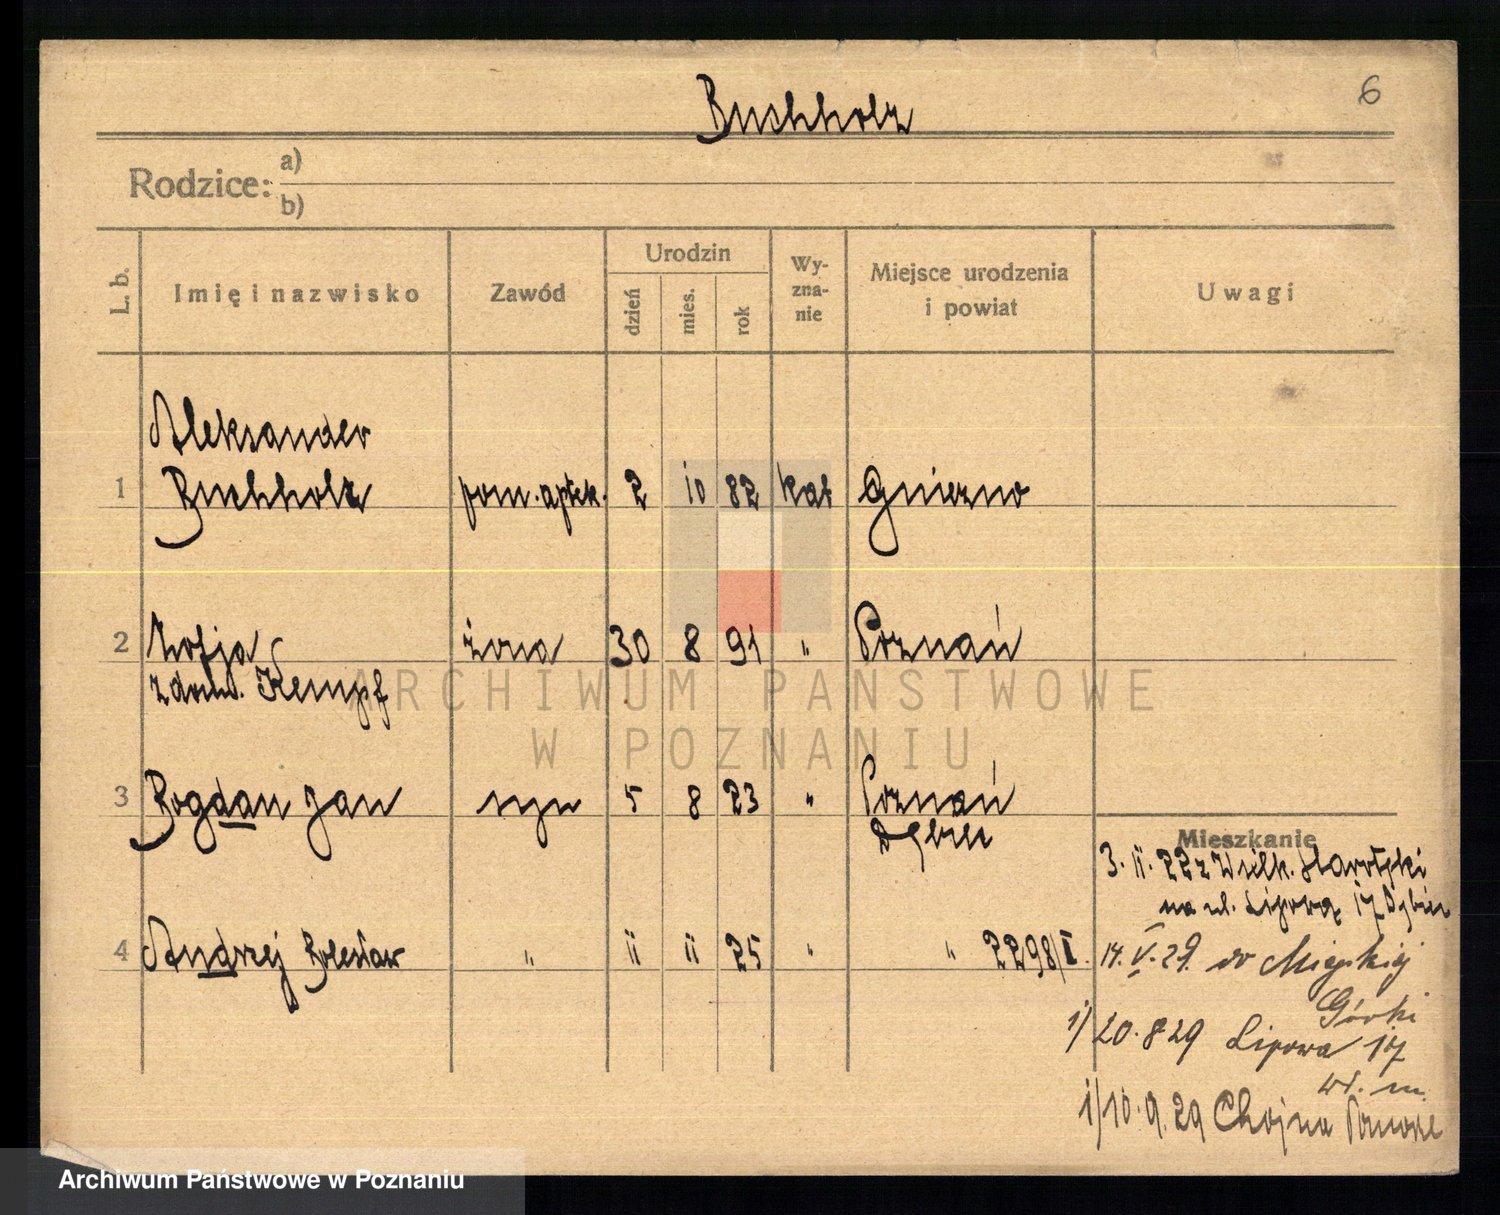 6
Buchholz
Rodzice: a)
b)
L. b. Imię i nazwisko Zawód Urodzin dzień mies. rok Wyznanie Miejsce urodzenia i powiat Uwagi
Aleksander
1 Buchholz pom. aptek. 2 10 82 kat Gniezno
2 Zofja żona 30 8 91 " Poznań
z dom. Kempf
3 Bogdan Jan syn 5 8 23 " Poznań
Dębiec
Mieszkanie
3. 11. 22 z Wilk.
na ul. Lipową 17 Dębiec
4 Andrzej Bolesław " 11 11 25 " " 2298/I.
14. V. 29. do Miejskiej
Górki
1/ 20. 8 29 Lipowa 17
wł. m.
1/ 10. 9. 29 Chojna
ARCHIWUM PAŃSTWOWE
W POZNANIU
Archiwum Państwowe w Poznaniu